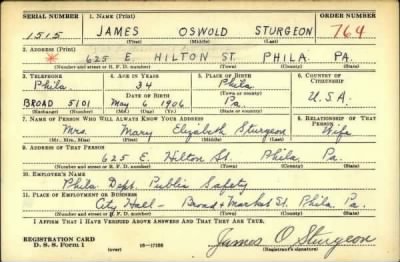 SERIAL NUMBER 1. NAME (Print) ORDER NUMBER
1515 JAMES OSWOLD STURGEON 764
(First) (Middle) (Last)
2. ADDRESS (Print)
* 625 E. HILTON ST. PHILA. PA.
(Number and street or R. F. D. number) (Town) (County) (State)
3. TELEPHONE 4. AGE IN YEARS 5. PLACE OF BIRTH 6. COUNTRY OF CITIZENSHIP
Phila. 34 Phila.
(Town or county)
DATE OF BIRTH
BROAD 5101 May 6 1906 Pa. U.S.A.
(Exchange) (Number) (Mo.) (Day) (Yr.) (State or country)
7. NAME OF PERSON WHO WILL ALWAYS KNOW YOUR ADDRESS 8. RELATIONSHIP OF THAT PERSON
Mrs. Mary Elizabeth Sturgeon Wife
(Mr., Mrs., Miss) (First) (Middle) (Last)
9. ADDRESS OF THAT PERSON
625 E. Hilton St. Phila. Pa.
(Number and street or R. F. D. number) (Town) (County) (State)
10. EMPLOYER'S NAME
Phila. Dept. Public Safety
11. PLACE OF EMPLOYMENT OR BUSINESS
City Hall - Broad & Market St. Phila. Pa.
(Number and street or R. F. D. number) (Town) (County) (State)
I AFFIRM THAT I HAVE VERIFIED ABOVE ANSWERS AND THAT THEY ARE TRUE.
REGISTRATION CARD
D. S. S. Form 1 (over) 16-17105 James O Sturgeon
(Registrant's signature)